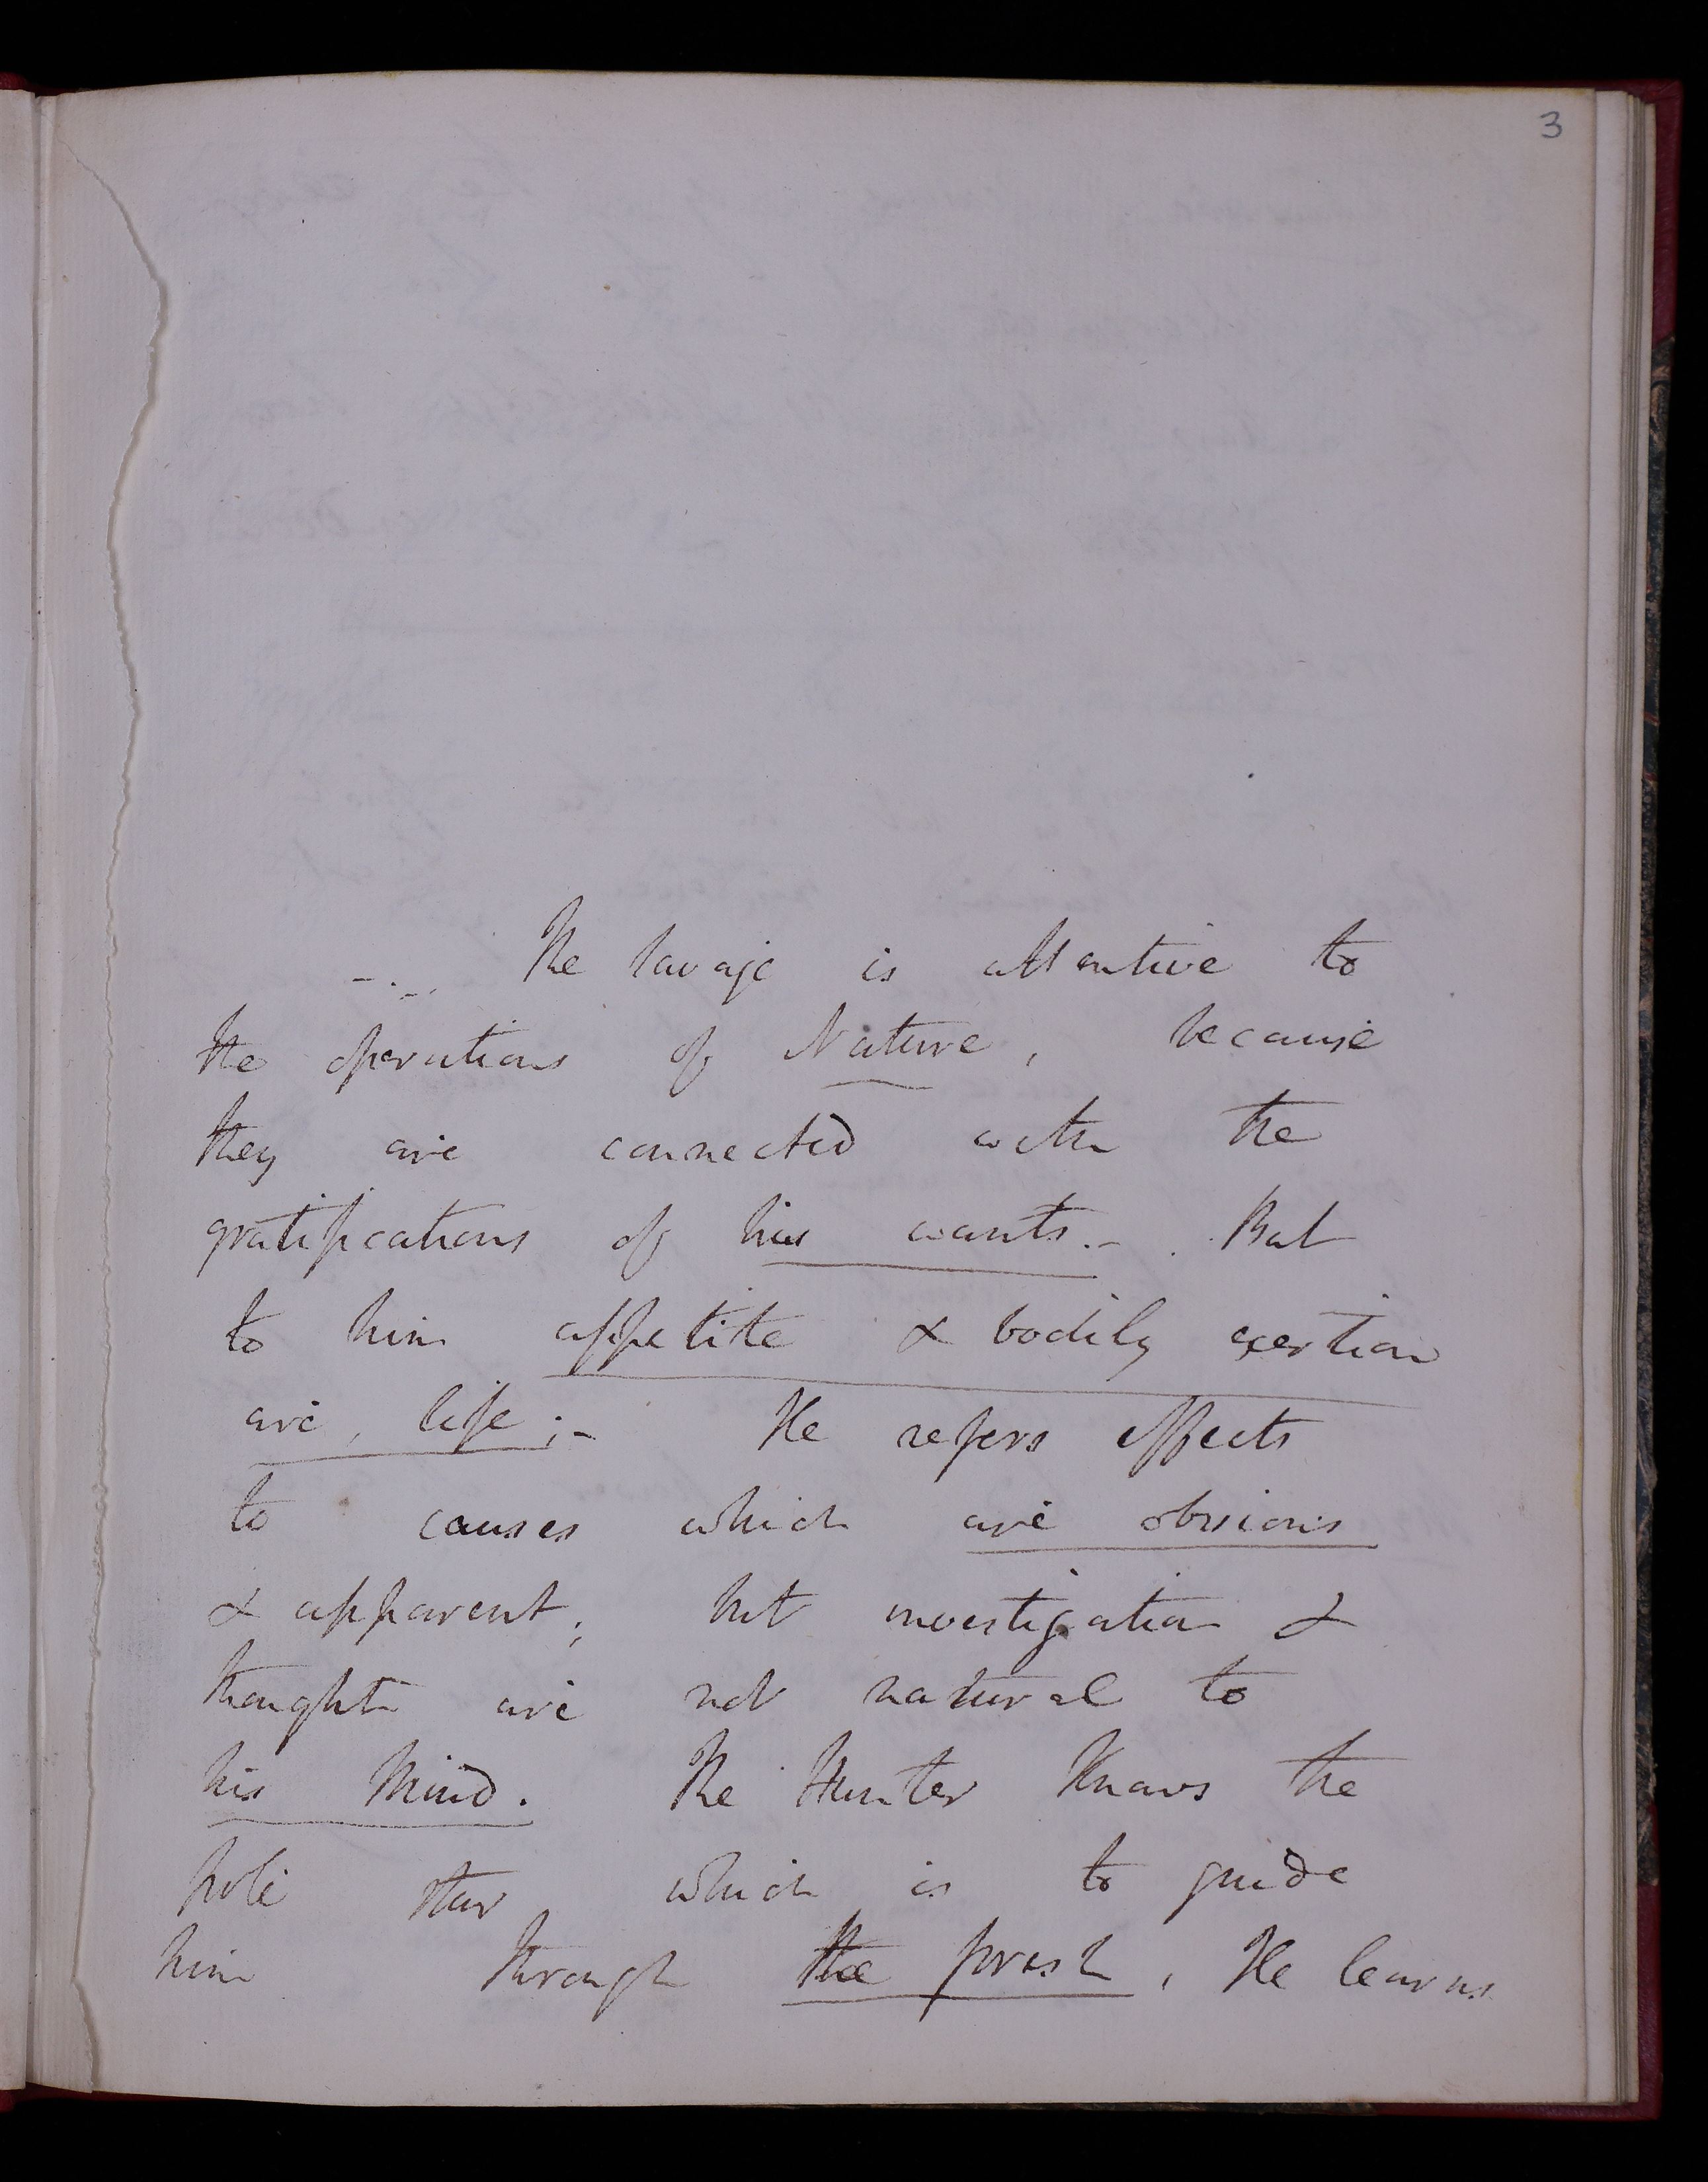 3
-.-. The savage is attentive to
the operations of Nature, because
they are connected with the
gratifications of his wants.- . But
to him appetite & bodily exertion
are, life;- He refers effects
to causes which are obvious
& apparent; but investigation &
thought are not natural to
his Mind. The Hunter Knows the
pole star which is to guide
him through the forest, He learns